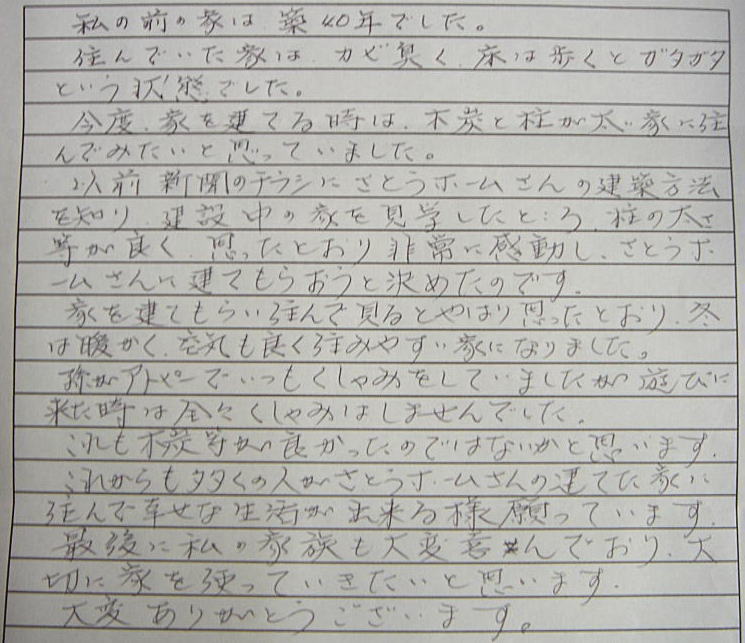 私の前の家は築40年でした。
住んでいた家は、カビ臭く、床は歩くとガタガタ
という状態でした。
今度、家を建てる時は、木炭と柱が太い家に住
んでみたいと思っていました。
以前新聞のチラシにさとうホームさんの建築方法
を知り、建設中の家を見学したところ、柱の太さ
等が良く、思ったとおり非常に感動し、さとうホ
ームさんに建てもらおうと決めたのです。
家を建てもらい住んで見るとやはり思ったとおり、冬
は暖かく、空気も良く住みやすい家になりました。
孫がアトピーでいつもくしゃみをしていましたが遊びに
来た時は全々くしゃみはしませんでした。
これも木炭等が良かったのではないかと思います。
これからも多くの人がさとうホームさんの建てた家に
住んで幸せな生活が出来る様願っています。
最後に私の家族も大変喜んでおり、大
切に家を使っていきたいと思います。
大変ありがとうございます。